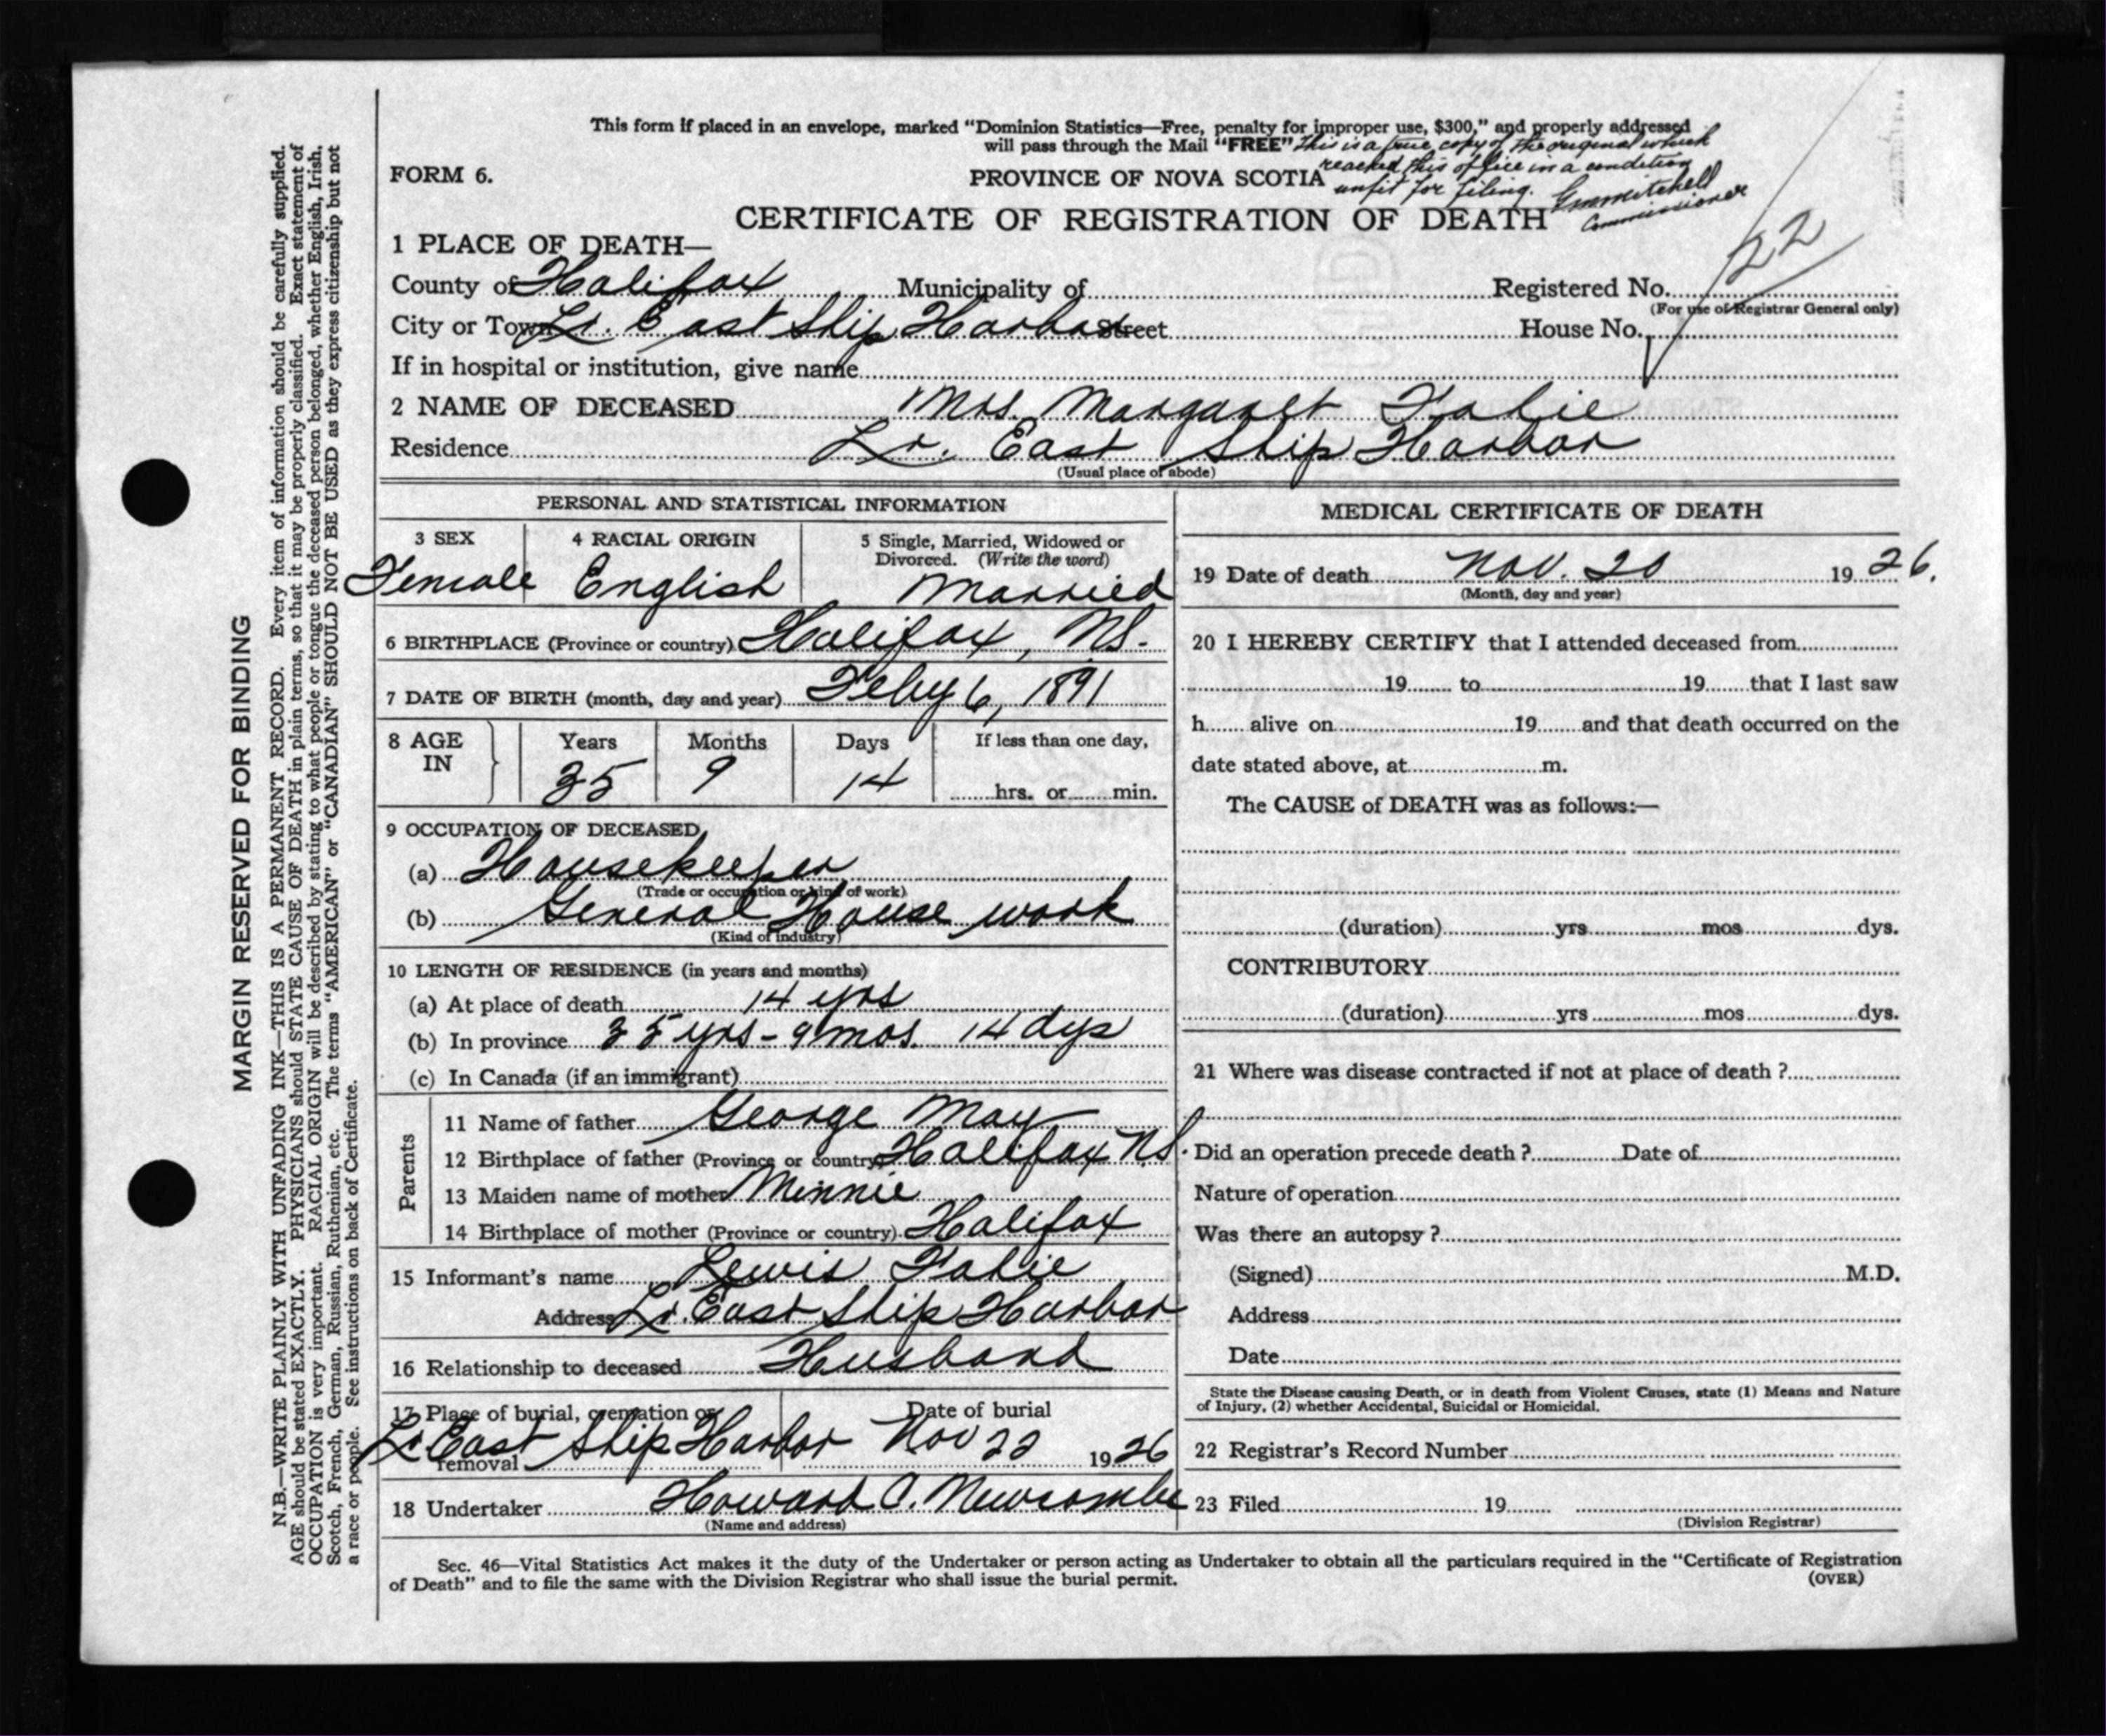 This form if placed in an envelope, marked "Dominion Statistics—Free, penalty for improper use, $300," and properly addressed
will pass through the Mail "FREE" This is a true copy of the original which
reached this office in a condition
unfit for filing.
Commissioner
FORM 6.
PROVINCE OF NOVA SCOTIA
CERTIFICATE OF REGISTRATION OF DEATH
1 PLACE OF DEATH—
County of Halifax Municipality of Registered No. 22
(For use of Registrar General only)
City or Town Lr. East Ship Harbor Street House No.
If in hospital or institution, give name
2 NAME OF DECEASED Mrs. Margaret Fahie
Residence Lr. East Ship Harbor
(Usual place of abode)
PERSONAL AND STATISTICAL INFORMATION
3 SEX 4 RACIAL ORIGIN 5 Single, Married, Widowed or
Divorced. (Write the word)
Female English Married
6 BIRTHPLACE (Province or country) Halifax, NS.
7 DATE OF BIRTH (month, day and year) Feby 6, 1891
8 AGE IN Years Months Days If less than one day,
35 9 14 hrs. or min.
9 OCCUPATION OF DECEASED
(a) Housekeeper
(Trade or occupation or kind of work)
(b) General House work
(Kind of industry)
10 LENGTH OF RESIDENCE (in years and months)
(a) At place of death 14 yrs
(b) In province 35 yrs - 9 mos. 14 dys
(c) In Canada (if an immigrant)
Parents
11 Name of father George May
12 Birthplace of father (Province or country) Halifax N.S.
13 Maiden name of mother Minnie
14 Birthplace of mother (Province or country) Halifax
15 Informant's name Lewis Fahie
Address Lr. East Ship Harbor
16 Relationship to deceased Husband
17 Place of burial, cremation or Date of burial
Lr East Ship Harbor Nov 22 1926
removal
18 Undertaker Howard C. Newcombe
(Name and address)
MEDICAL CERTIFICATE OF DEATH
19 Date of death Nov. 20 1926.
(Month, day and year)
20 I HEREBY CERTIFY that I attended deceased from
19 to 19 that I last saw
h alive on 19 and that death occurred on the
date stated above, at m.
The CAUSE of DEATH was as follows:—
(duration) yrs mos dys.
CONTRIBUTORY
(duration) yrs mos dys.
21 Where was disease contracted if not at place of death ?
Did an operation precede death ? Date of
Nature of operation
Was there an autopsy ?
(Signed) M.D.
Address
Date
State the Disease causing Death, or in death from Violent Causes, state (1) Means and Nature
of Injury, (2) whether Accidental, Suicidal or Homicidal.
22 Registrar's Record Number
23 Filed 19
(Division Registrar)
Sec. 46—Vital Statistics Act makes it the duty of the Undertaker or person acting as Undertaker to obtain all the particulars required in the "Certificate of Registration
of Death" and to file the same with the Division Registrar who shall issue the burial permit. (OVER)
MARGIN RESERVED FOR BINDING
N.B.—WRITE PLAINLY WITH UNFADING INK—THIS IS A PERMANENT RECORD. Every item of information should be carefully supplied.
AGE should be stated EXACTLY. PHYSICIANS should STATE CAUSE OF DEATH in plain terms, so that it may be properly classified. Exact statement of
OCCUPATION is very important. RACIAL ORIGIN will be described by stating to what people or tongue the deceased person belonged, whether English, Irish,
Scotch, French, German, Russian, Ruthenian, etc. The terms "AMERICAN" or "CANADIAN" SHOULD NOT BE USED as they express citizenship but not
a race or people. See instructions on back of Certificate.